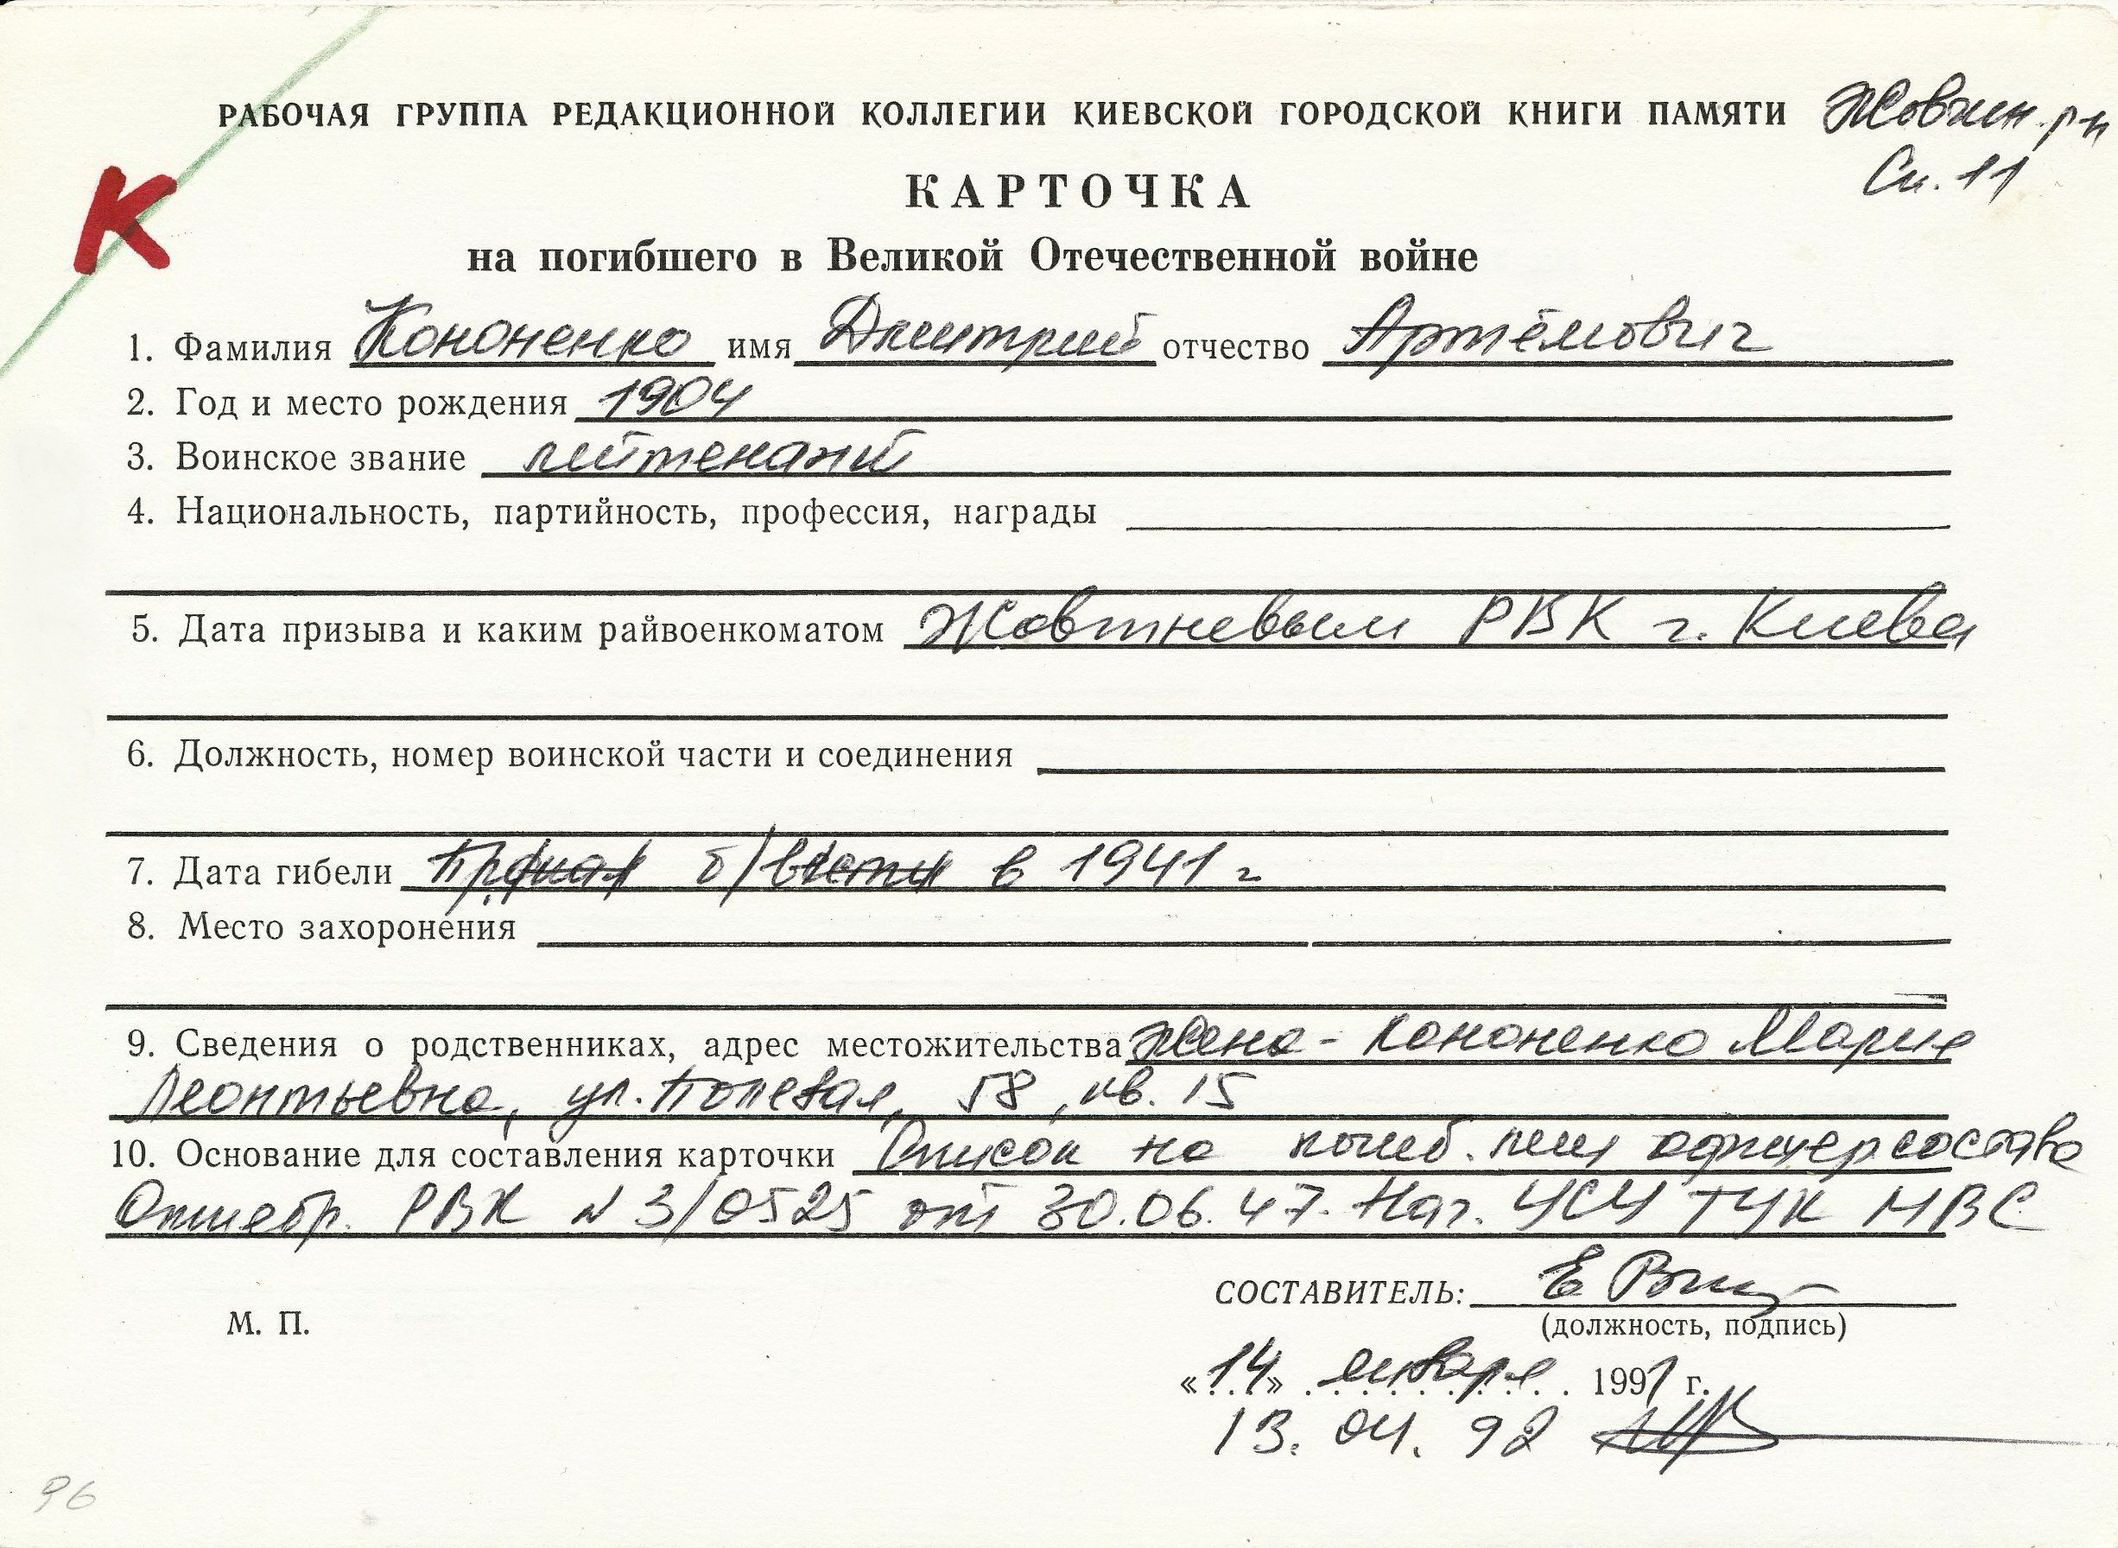 РАБОЧАЯ ГРУППА РЕДАКЦИОННОЙ КОЛЛЕГИИ КИЕВСКОЙ ГОРОДСКОЙ КНИГИ ПАМЯТИ
Сп. 11
К
КАРТОЧКА
на погибшего в Великой Отечественной войне
1. Фамилия Кононенко имя Дмитрий отчество Артёмович
2. Год и место рождения 1904
3. Воинское звание лейтенант
4. Национальность, партийность, профессия, награды
5. Дата призыва и каким райвоенкоматом Жовтневым РВК г. Киева
6. Должность, номер воинской части и соединения
7. Дата гибели Пропал б/вести в 1941 г
8. Место захоронения
9. Сведения о родственниках, адрес местожительства Жена - Кононенко Мария
Леонтьевна, ул. Полевая, 58, кв. 15
10. Основание для составления карточки Список на погиб. офицер. состава
Октябр. РВК N 3/0525 от 30.06.47. Нач.
СОСТАВИТЕЛЬ:
(должность, подпись)
М. П.
«14» января 1991 г.
13. 04. 92
96